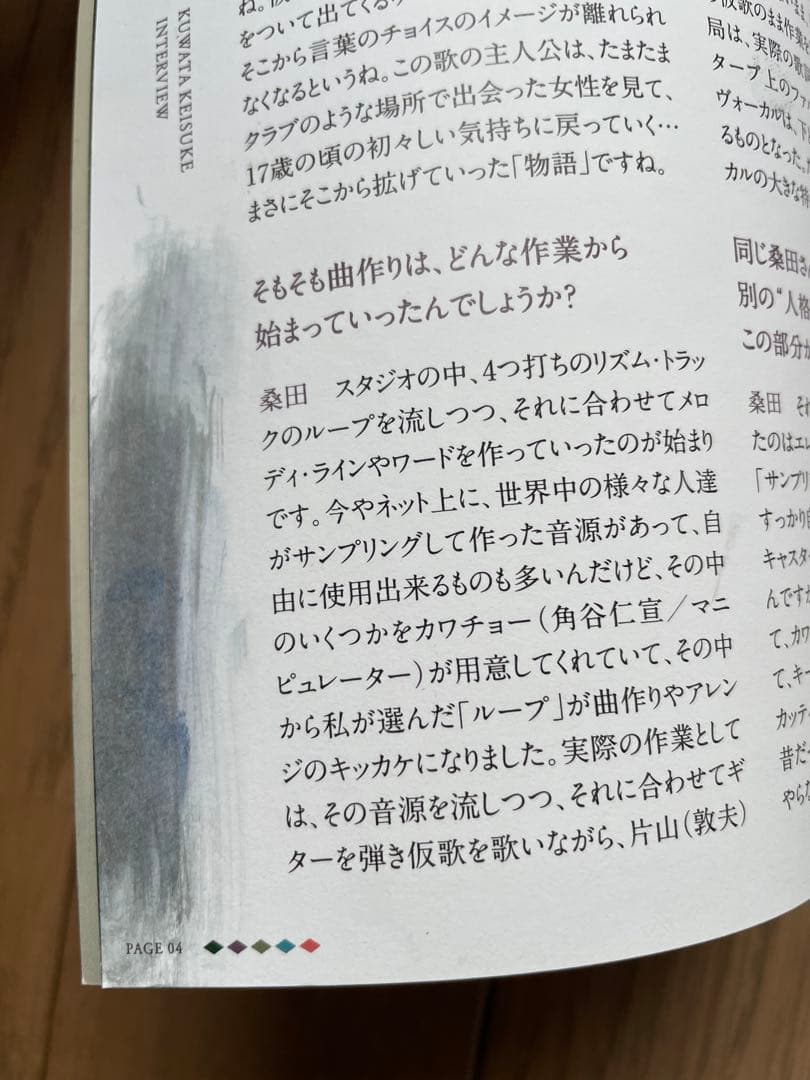 KUWATA KEISUKE
INTERVIEW
をついて出てくる
そこから言葉のチョイスのイメージが離れられ
なくなるというね。この歌の主人公は、たまたま
クラブのような場所で出会った女性を見て、
17歳の頃の初々しい気持ちに戻っていく…
まさにそこから拡げていった「物語」ですね。
そもそも曲作りは、どんな作業から
始まっていったんでしょうか?
桑田 スタジオの中、4つ打ちのリズム・トラッ
クのループを流しつつ、それに合わせてメロ
ディ・ラインやワードを作っていったのが始まり
です。今やネット上に、世界中の様々な人達
がサンプリングして作った音源があって、自
由に使用出来るものも多いんだけど、その中
のいくつかをカワチョー(角谷仁宣/マニ
ピュレーター)が用意してくれていて、その中
から私が選んだ「ループ」が曲作りやアレン
ジのキッカケになりました。実際の作業として
は、その音源を流しつつ、それに合わせてギ
ターを弾き仮歌を歌いながら、片山(敦夫)
PAGE 04
仮歌のまま作業
局は、実際の歌
タープ上のファ
ヴォーカルは、下
るものとなった。
カルの大きな特
同じ桑田さ
別の“人格
この部分が
桑田 それ
たのはエレ
「サンプリ
すっかり自
キャスター
んですが
て、カワ
て、キー
カッティ
昔だっ
やらな